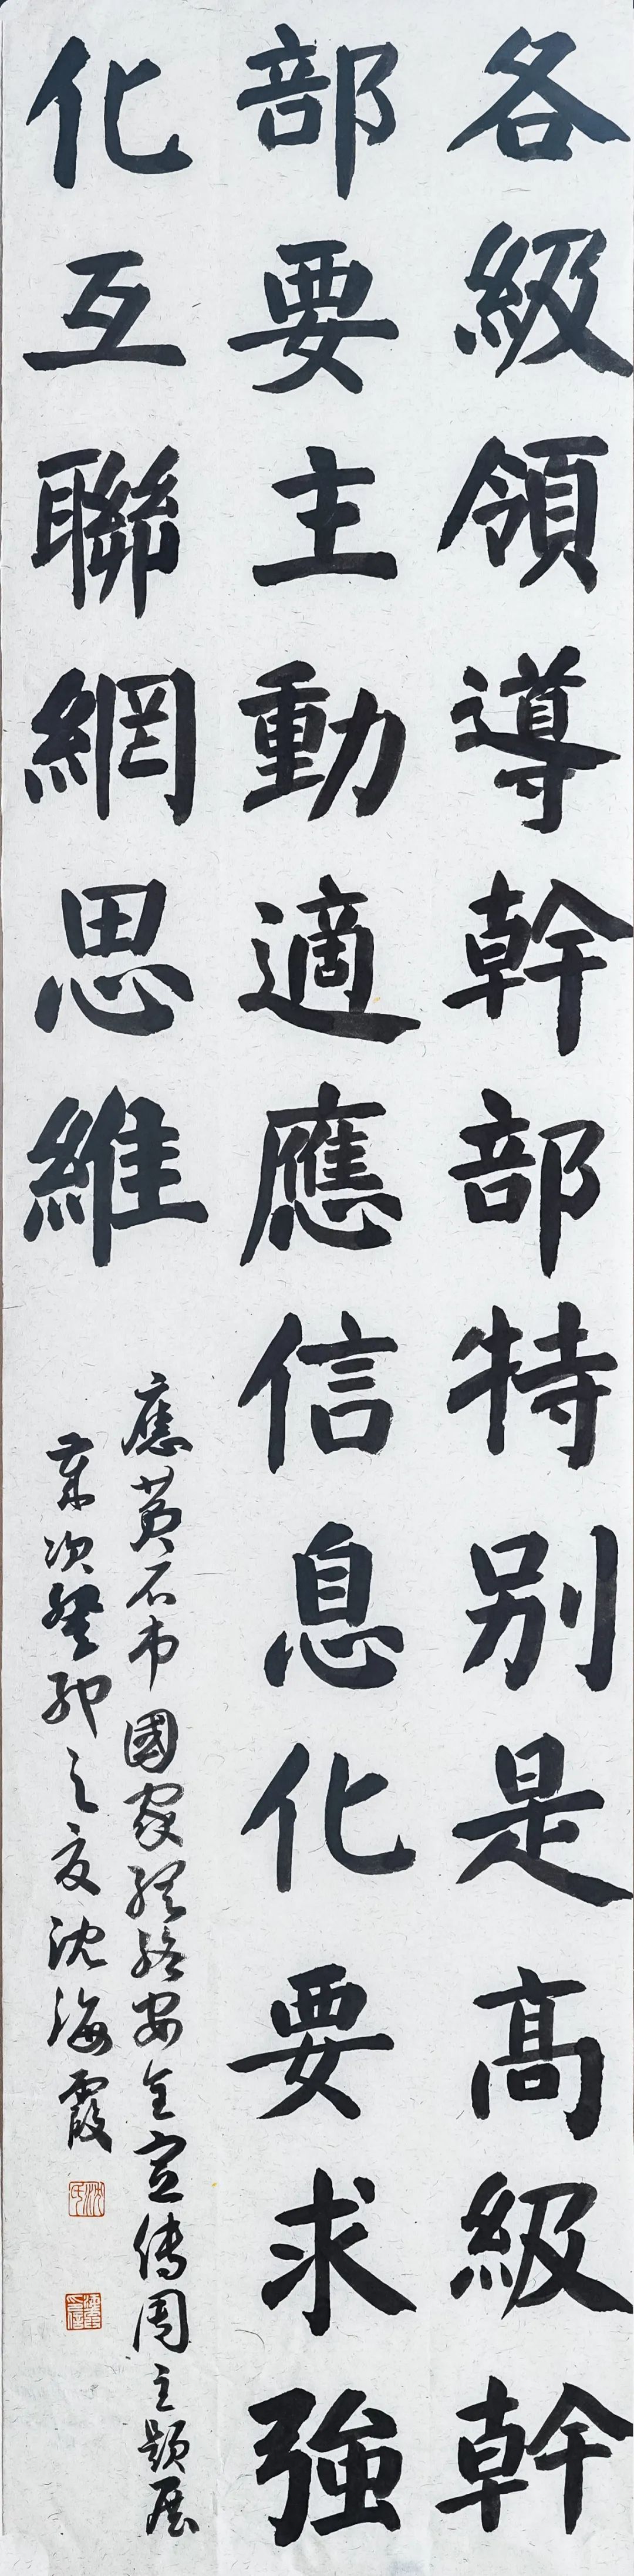 各級領導幹部特別是高級幹
部要主動適應信息化要求強
化互聯網思維
應黄石市國家網絡安全宣傳周主題展
歲次癸卯之夏沈海霞
沈氏